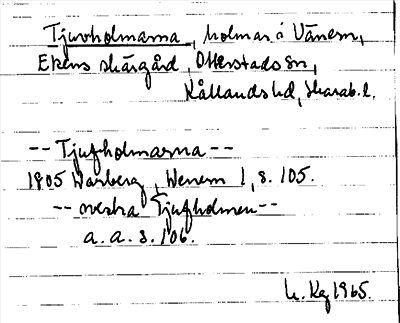 Tjuvholmarna, holmar i Vänern,
Ekens skärgård, Otterstads sn,
Kållands hd, Skarab. l.
-- Tjufholmarna --
1905 Warberg, Wenern 1, s. 105.
-- vestra Tjufholmen --
a. a. s. 106.
1965.